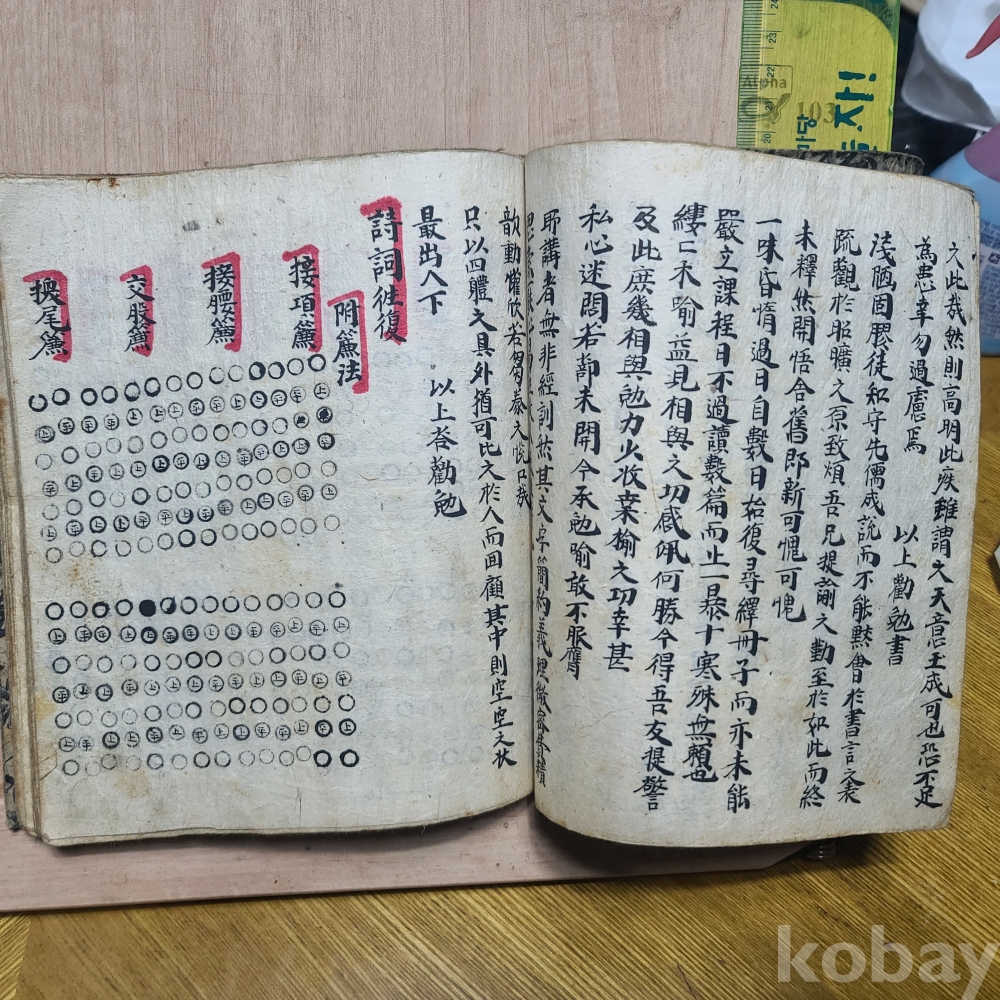 之此哉然則高明此疾雖謂之天意玉成可也恐不足
為患幸勿過慮焉
以上勸勉書
淺陋固膠徒知守先儒成說而不能黙會於書言之表
疏觀於昭曠之原致煩吾兄提諭之勤至於如此而終
未釋然開悟舍舊卽新可愧可愧
一味昏惰過日自數日始復尋繹冊子而亦未能
嚴立課程日不過讀數篇而止一曝十寒殊無賴也
縷縷不喻益見相與之切感佩何勝今得吾友提警
及此庶幾相與勉力以收桑榆之功幸甚
私心迷悶若蔀未開今承勉喻敢不服膺
耶講者無非經訓然其文字簡約義理微密
歆動懽欣若芻豢之悅口哉
只以四體之具外猶可比之於人而回顧其中則空空之狀
最出人下
以上答勸勉
詩詞往復
附簾法
接項簾
接腰簾
交股簾
換尾簾
上
平
Alpha
103
마당
kobay